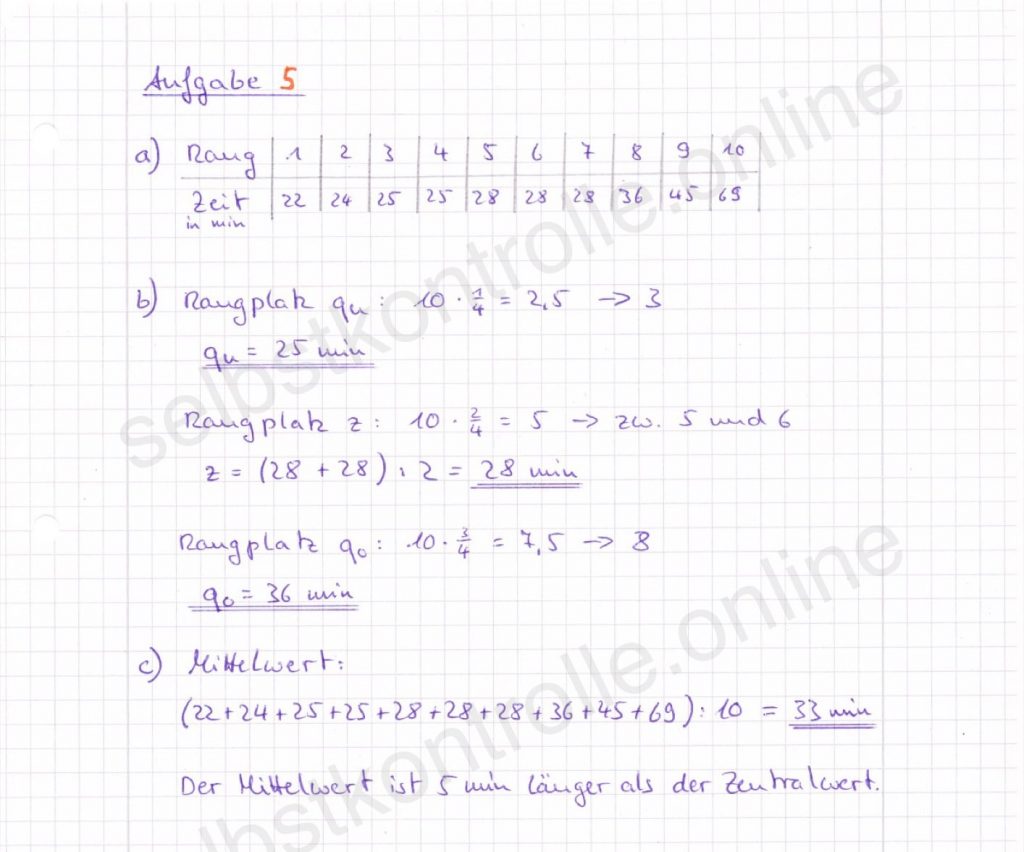 Aufgabe 5
a) Rang | 1 | 2 | 3 | 4 | 5 | 6 | 7 | 8 | 9 | 10
Zeit | 22 | 24 | 25 | 25 | 28 | 28 | 28 | 36 | 45 | 69
in min
b) Rangplatz qu : 10 · 1/4 = 2,5 → 3
qu = 25 min
Rangplatz z : 10 · 2/4 = 5 → zw. 5 und 6
z = (28 + 28) : 2 = 28 min
Rangplatz qo : 10 · 3/4 = 7,5 → 8
qo = 36 min
c) Mittelwert:
(22+24+25+25+28+28+28+36+45+69) : 10 = 33 min
Der Mittelwert ist 5 min länger als der Zentralwert.
selbstkontrolle.online
selbstkontrolle.online